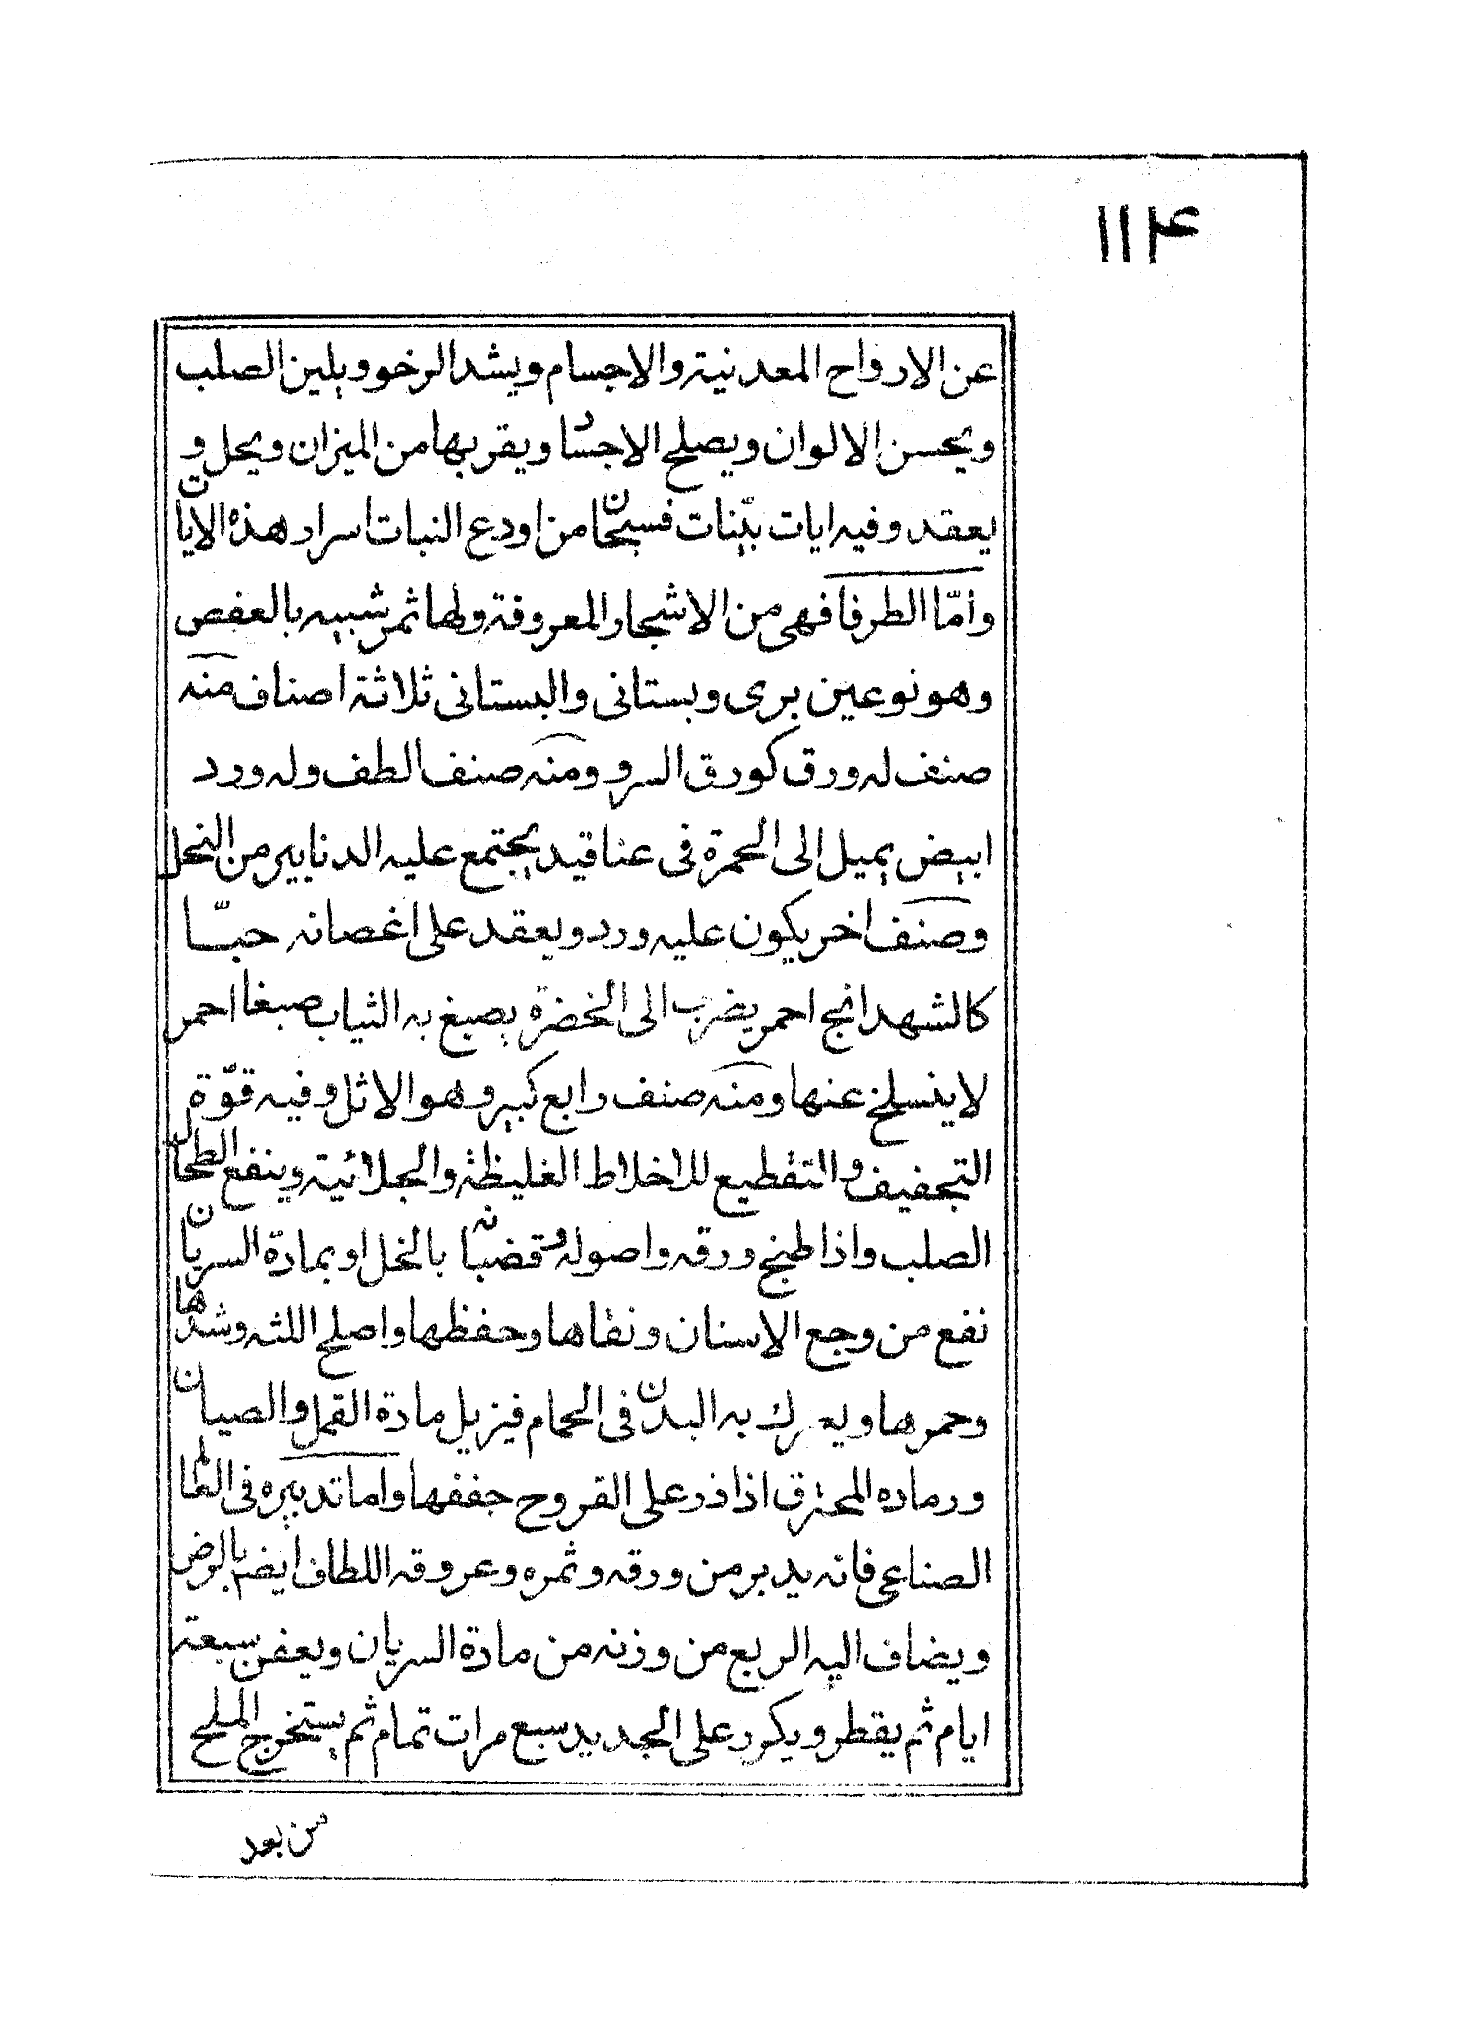 ١١۴
عن الارواح المعدنية والاجسام ويشد الرخو ويلين الصلب
ويحسن الالوان ويصلح الاجساد ويقربها من الميزان ويحل و
يعقد وفيه ايات بيّنات فسبحان من اودع النبات اسرار هذه الايات
وامّا الطرفا فهى من الاشجار المعروفة ولها ثمر شبيه بالعفص
وهو نوعين برى وبستانى والبستانى ثلاثة اصناف منه
صنف له ورق كورق السرو ومنه صنف الطف وله ورد
ابيض يميل الى الحمرة فى عناقيد يجتمع عليه الدنابير من النحل
وصنف اخر يكون عليه ورد ويعقد على اغصانه حبّا
كالشهدانج احمر يضرب الى الخضرة يصبغ به الثياب صبغا احمر
لا ينسلخ عنها ومنه صنف رابع كبير وهو الاثل وفيه قوّة
التجفيف والتقطيع للاخلاط الغليظة والجلائية وينفع الطحال
الصلب واذا طبخ ورقه واصوله وقضبانه بالخل او بمادة السريان
نفع من وجع الاسنان ونقاها وحفظها واصلح اللثه وشدها
وحمرها ويعرك به البدن فى الحمام فيزيل مادة القمل والصيبان
ورماده المحترق اذا ذر على القروح جففها واما تدبيره فى العالم
الصناعى فانه يدبر من ورقه وثمره وعروقه اللطاف ايضا بالرض
ويضاف اليه الربع من وزنه من مادة السريان ويعفن سبعة
ايام ثم يقطر ويكرر على الجديد سبع مرات تمام ثم يستخرج الملح
من بعد